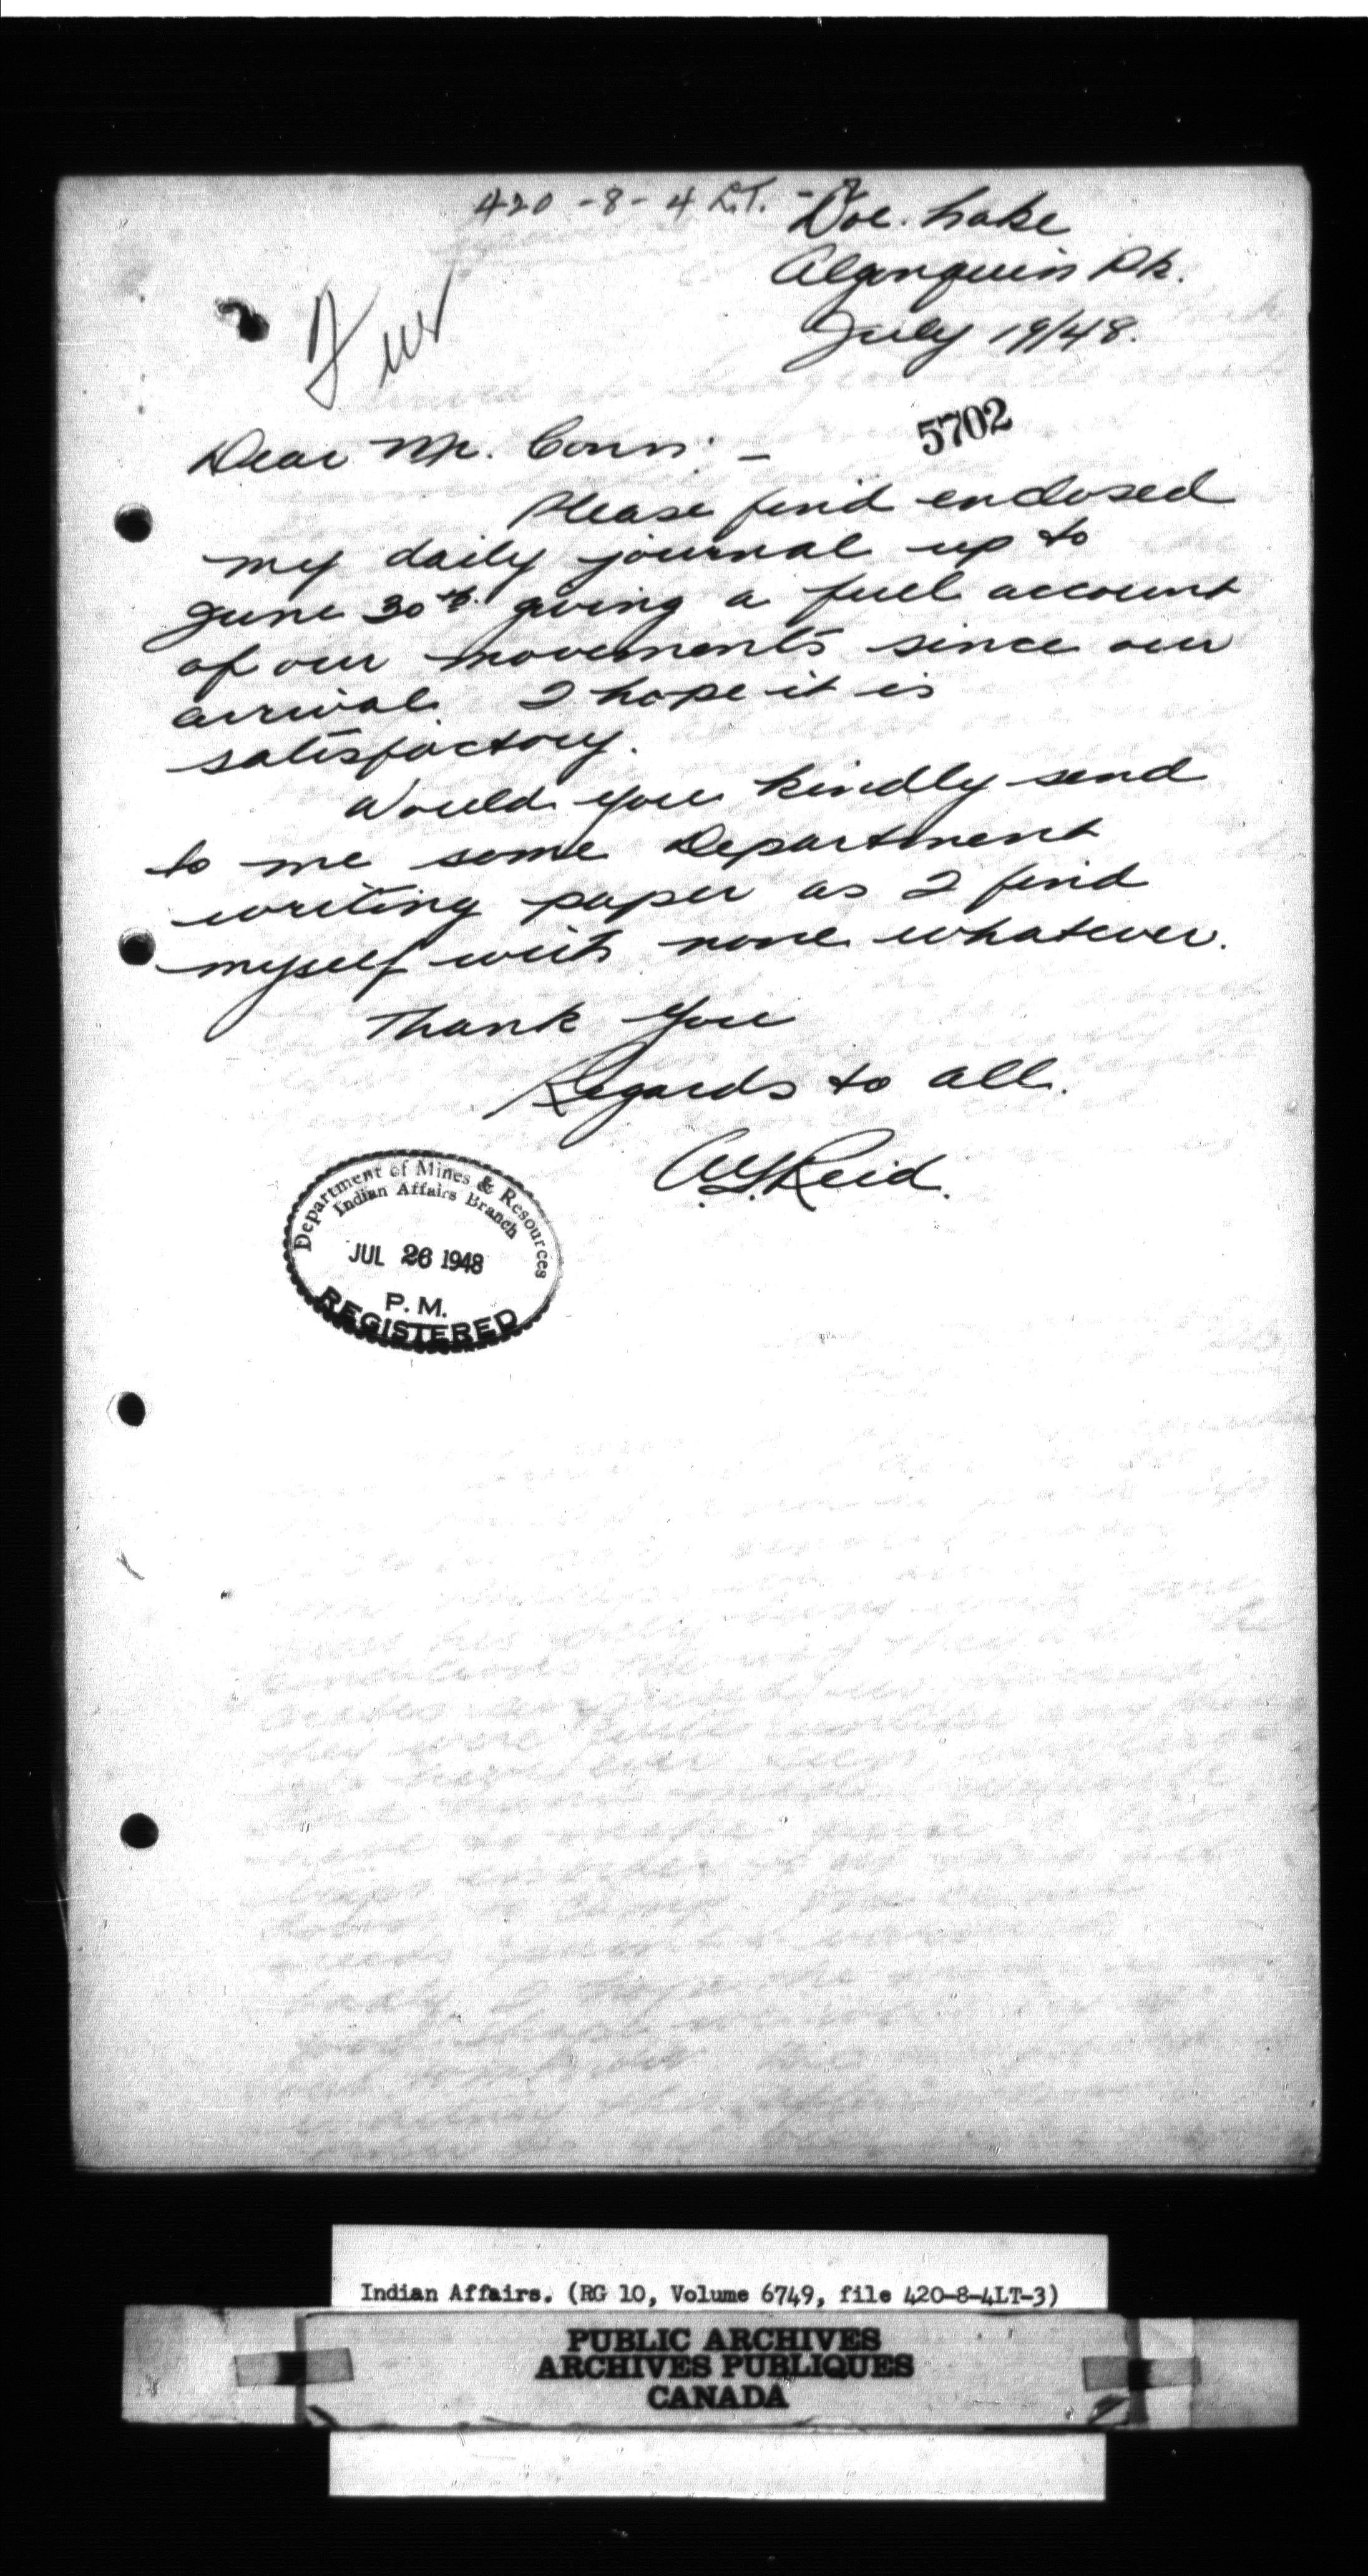 420-8-4 L.T. -
Doe. Lake
Algonquin Pk.
July 19/48.
Fur
5702
Dear Mr. Conn: -
Please find enclosed
my daily journal up to
June 30th. giving a full account
of our movements since our
arrival. I hope it is
satisfactory.
Would you kindly send
to me some Department
writing paper as I find
myself with none whatever.
Thank You
Regards to all.
Reid.
Department of Mines & Resources
Indian Affairs Branch
JUL 26 1948
P.M.
REGISTERED
Indian Affairs. (RG 10, Volume 6749, file 420-8-4LT-3)
PUBLIC ARCHIVES
ARCHIVES PUBLIQUES
CANADA